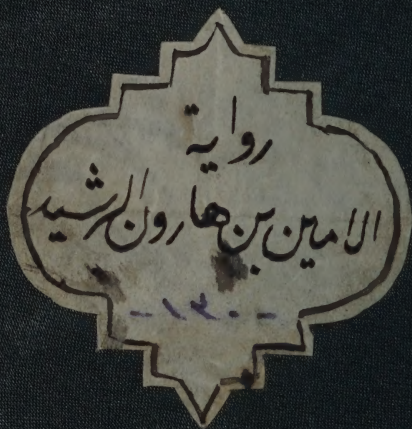 رواية
الامين بن هارون الرشيد
-١٣٠٠-